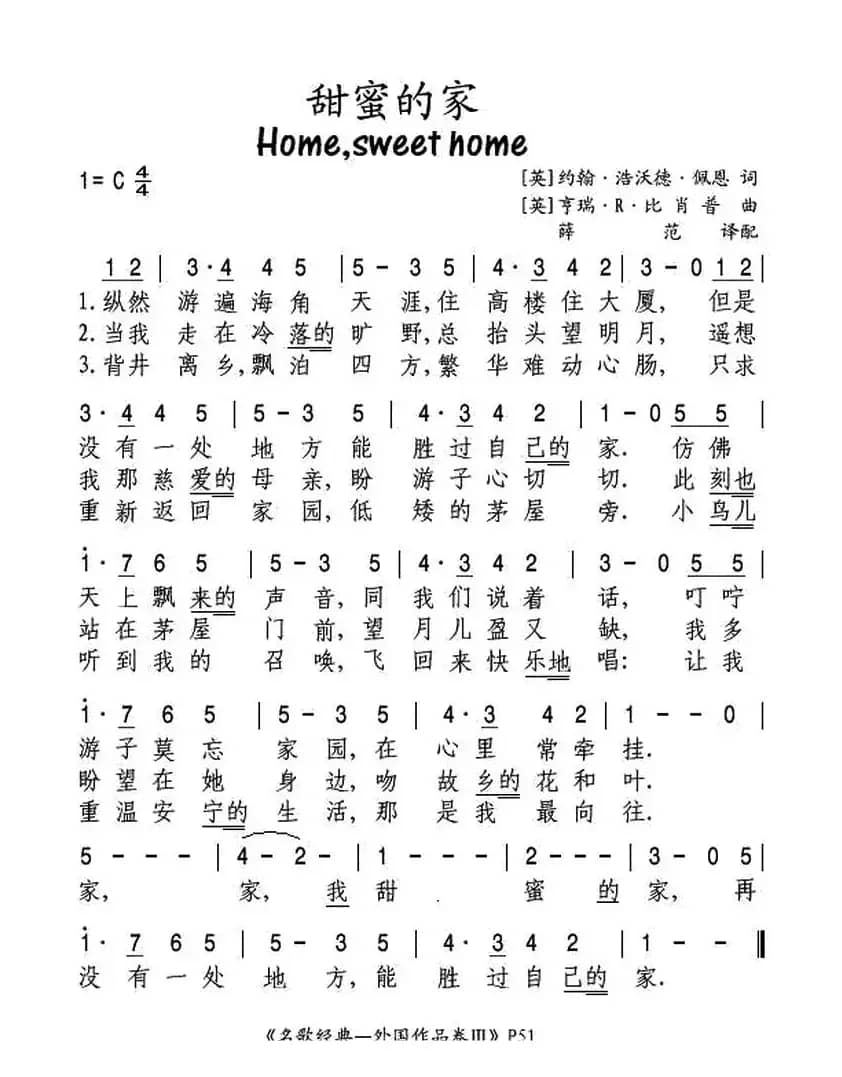 甜蜜的家
Home,sweet home
1= C 4/4
[英]约翰·浩沃德·佩恩 词
[英]亨瑞·R·比肖普 曲
薛范 译配
1 2 | 3·4 4 5 | 5 – 3 5 | 4·3 4 2 | 3 – 0 1 2 |
1.纵然 游遍海角 天涯,住 高楼住大厦, 但是
2.当我 走在冷落的旷野,总 抬头望明月, 遥想
3.背井 离乡,飘泊 四方,繁 华难动心肠, 只求
3·4 4 5 | 5 – 3 5 | 4·3 4 2 | 1 – 0 5 5 |
没有一处 地方能 胜过自己的 家. 仿佛
我那慈爱的母亲,盼 游子心切 切. 此刻也
重新返回 家园,低 矮的茅屋 旁. 小鸟儿
i·7 6 5 | 5 – 3 5 | 4·3 4 2 | 3 – 0 5 5 |
天上飘来的 声音,同 我们说着 话, 叮咛
站在茅屋 门前,望 月儿盈又 缺, 我多
听到我的 召唤,飞 回来快乐地 唱: 让我
i·7 6 5 | 5 – 3 5 | 4·3 4 2 | 1 – – 0 |
游子莫忘 家园,在 心里常牵挂.
盼望在她 身边,吻 故乡的花和叶.
重温安宁的 生活,那 是我最向往.
5 – – – | 4 – 2 – | 1 – – – | 2 – – – | 3 – 0 5 |
家, 家,我甜 蜜的家,再
i·7 6 5 | 5 – 3 5 | 4·3 4 2 | 1 – – ‖
没有一处 地方,能 胜过自己的 家.
《名歌经典—外国作品卷Ⅲ》P51